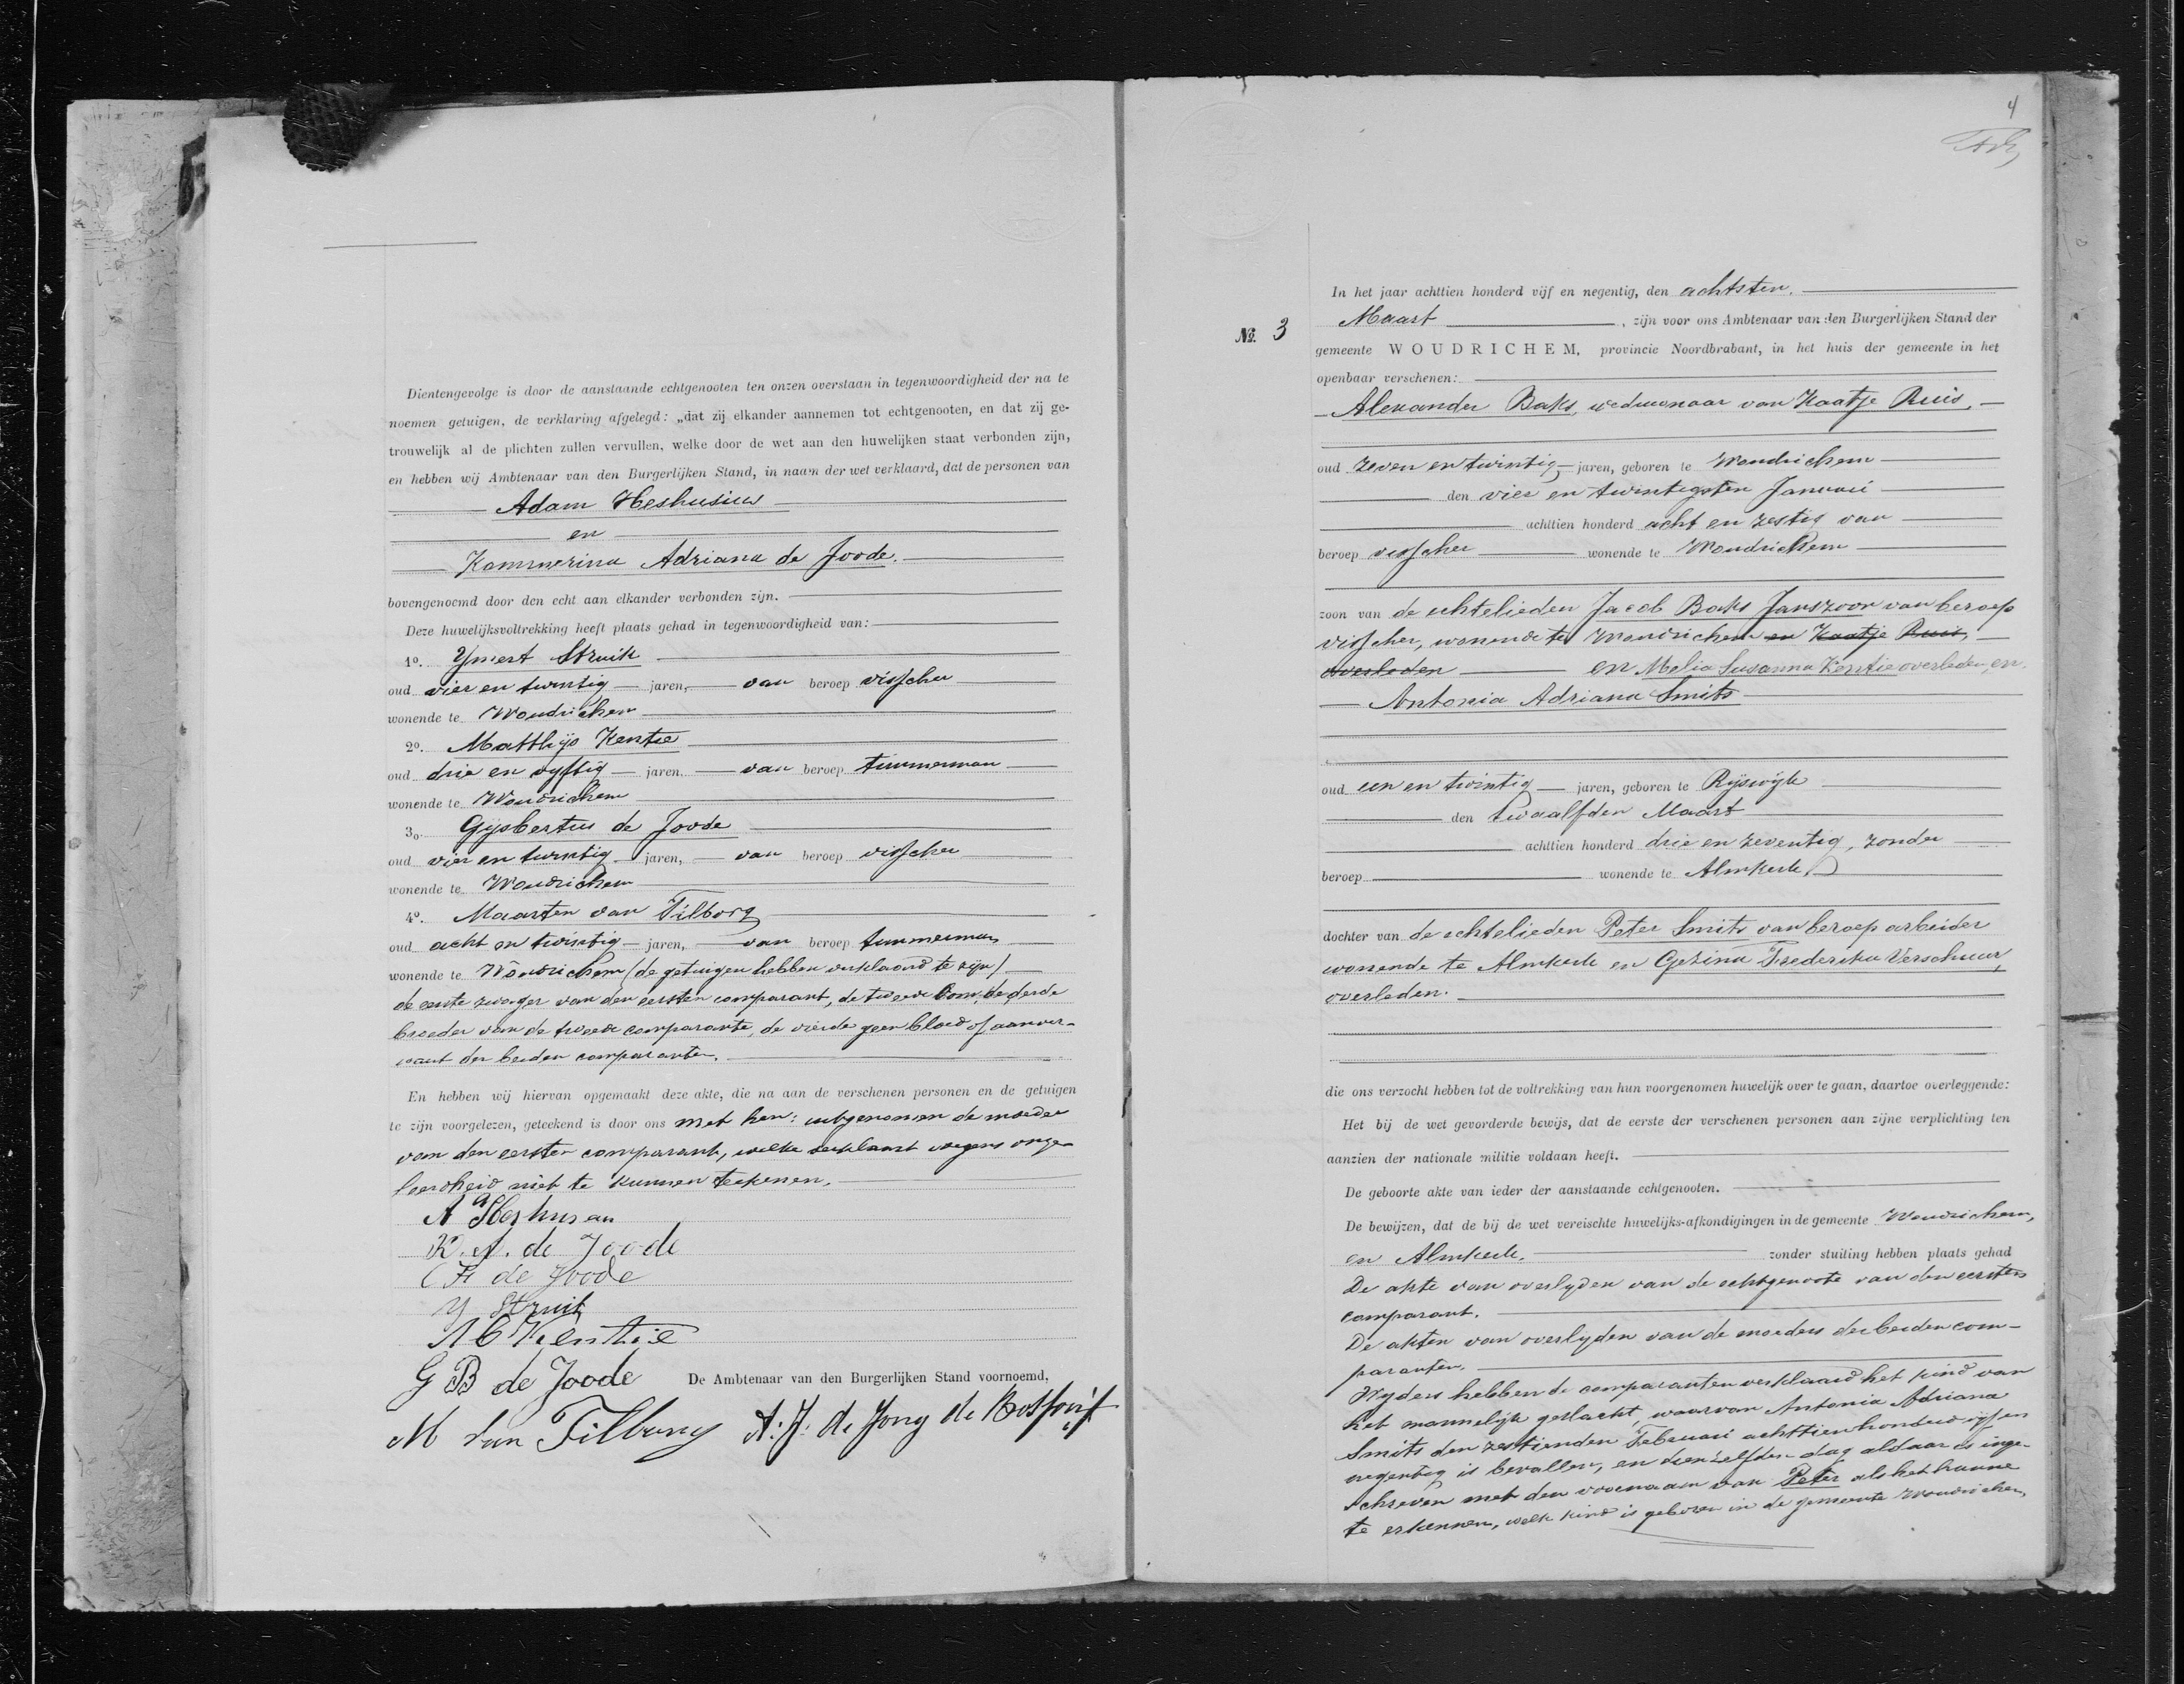 Dientengevolge is door de aanstaande echtgenooten ten onzen overstaan in tegenwoordigheid der na te
noemen getuigen, de verklaring afgelegd: „dat zij elkander aannemen tot echtgenooten, en dat zij ge-
trouwelijk al de plichten zullen vervullen, welke door de wet aan den huwelijken staat verbonden zijn,
en hebben wij Ambtenaar van den Burgerlijken Stand, in naam der wet verklaard, dat de personen van
Adam Heshusius
en
Kommerina Adriana de Joode.
bovengenoemd door den echt aan elkander verbonden zijn.
Deze huwelijksvoltrekking heeft plaats gehad in tegenwoordigheid van:
1o. Ymert Struik
oud vier en twintig jaren, van beroep visscher
wonende te Woudrichem
2o. Matthijs Kentie
oud drie en vyftig jaren, van beroep timmerman
wonende te Woudrichem
3o. Gijsbertus de Joode
oud vier en twintig jaren, van beroep visscher
wonende te Woudrichem
4o. Maarten van Tilborg
oud acht en twintig jaren, van beroep timmerman
wonende te Woudrichem (de getuigen hebben verklaard te zijn)
de eerste zwager van den eersten comparant, de tweede oom, de derde
broeder van de tweede comparante, de vierde geen bloed of aanver-
want der beiden comparanten.
En hebben wij hiervan opgemaakt deze akte, die na aan de verschenen personen en de getuigen
te zijn voorgelezen, geteekend is door ons met hen: uitgenomen de moeder
van den eersten comparant, welke verklaart wegens onge-
leerdheid niet te kunnen teekenen.
A Heshusen
K. A. de Joode
de Joode
Y Struik
Kentie
G B de Joode De Ambtenaar van den Burgerlijken Stand voornoemd,
M van Tilburg A: J: de Jong de
4
No. 3
In het jaar achttien honderd vijf en negentig, den achtsten.
Maart , zijn voor ons Ambtenaar van den Burgerlijken Stand der
gemeente WOUDRICHEM, provincie Noordbrabant, in het huis der gemeente in het
openbaar verschenen:
Alexander Baks, weduwnaar van Kaatje Ruis,
oud zeven en twintig jaren, geboren te Woudrichem
den vier en twintigsten Januari
achttien honderd acht en zestig van
beroep visscher wonende te Woudrichem
zoon van de echtelieden Jacob Baks Janszoon van beroep
visscher, wonende te Woudrichem en Kaatje Ruis,
overleden en Melia Susanna Kentie overleden, en
Antonia Adriana Smits
oud een en twintig jaren, geboren te Rijswijk
den twaalfden Maart
achttien honderd drie en zeventig, zonder
beroep wonende te Almkerk
dochter van de echtelieden Peter Smits van beroep arbeider
wonende te Almkerk en Gesina Frederika Verschuur,
overleden.
die ons verzocht hebben tot de voltrekking van hun voorgenomen huwelijk over te gaan, daartoe overleggende:
Het bij de wet gevorderde bewijs, dat de eerste der verschenen personen aan zijne verplichting ten
aanzien der nationale militie voldaan heeft.
De geboorte akte van ieder der aanstaande echtgenooten.
De bewijzen, dat de bij de wet vereischte huwelijks-afkondigingen in de gemeente Woudrichem,
en Almkerk. zonder stuiting hebben plaats gehad
De akte van overlyden van de echtgenoote van den eersten
comparant.
De akten van overlyden van de moeders der beiden com-
paranten.
Wyders hebben de comparanten verklaard het kind van
het mannelijk geslacht, waarvan Antonia Adriana
Smits den zestienden Februari achttienhonderd vijf en
negentig is bevallen, en dienzelfden dag aldaar is inge-
schreven met den voornaam van Peter als het hunne
te erkennen, welk kind is geboren in de gemeente Woudrichem,